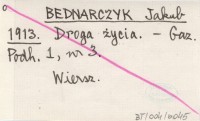 BEDNARCZYK Jakub
1913. Droga życia. - Gaz.
Podh. 1, nr 3.
Wiersz.
BJ/004/0045